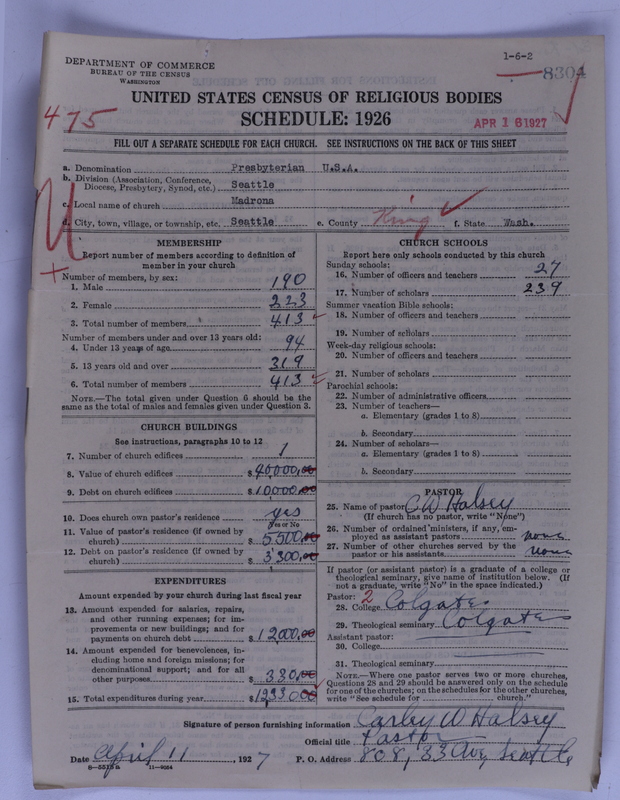 1-6-2
8304
DEPARTMENT OF COMMERCE
BUREAU OF THE CENSUS
WASHINGTON
UNITED STATES CENSUS OF RELIGIOUS BODIES
SCHEDULE: 1926
475
APR 16 1927
FILL OUT A SEPARATE SCHEDULE FOR EACH CHURCH. SEE INSTRUCTIONS ON THE BACK OF THIS SHEET
a. Denomination Presbyterian U.S.A.
b. Division (Association, Conference, Diocese, Presbytery, Synod, etc.) Seattle
c. Local name of church Madrona
d. City, town, village, or township, etc. Seattle e. County King f. State Wash.
MEMBERSHIP
Report number of members according to definition of
member in your church
Number of members, by sex:
1. Male 190
2. Female 223
3. Total number of members 413
Number of members under and over 13 years old:
4. Under 13 years of age 94
5. 13 years old and over 319
6. Total number of members 413
NOTE.—The total given under Question 6 should be
same as the total of males and females given under Question 3.
CHURCH BUILDINGS
See instructions, paragraphs 10 to 12
7. Number of church edifices 1
8. Value of church edifices $ 40,000,00
9. Debt on church edifices $ 10000,00
10. Does church own pastor's residence yes
Yes or No
11. Value of pastor's residence (if owned by
church) $ 5500,00
12. Debt on pastor's residence (if owned by
church) $ 3300,00
EXPENDITURES
Amount expended by your church during last fiscal year
13. Amount expended for salaries, repairs,
and other running expenses; for im-
provements or new buildings; and for
payments on church debt $ 12,000,00
14. Amount expended for benevolences, in-
cluding home and foreign missions; for
denominational support; and for all
other purposes $ 330,00
15. Total expenditures during year $ 12330,00
CHURCH SCHOOLS
Report here only schools conducted by this church
Sunday schools:
16. Number of officers and teachers 27
17. Number of scholars 239
Summer vacation Bible schools:
18. Number of officers and teachers
19. Number of scholars
Week-day religious schools:
20. Number of officers and teachers
21. Number of scholars
Parochial schools:
22. Number of administrative officers
23. Number of teachers—
a. Elementary (grades 1 to 8)
b. Secondary
24. Number of scholars—
a. Elementary (grades 1 to 8)
b. Secondary
PASTOR
25. Name of pastor C W Halsey
(If church has no pastor, write "None")
26. Number of ordained ministers, if any, em-
ployed as assistant pastors none
27. Number of other churches served by the
pastor or his assistants none
If pastor (or assistant pastor) is a graduate of a college or
theological seminary, give name of institution below. (If
not a graduate, write "No" in the space indicated.)
Pastor: 2
28. College Colgate
29. Theological seminary Colgate
Assistant pastor:
30. College
31. Theological seminary
NOTE.—Where one pastor serves two or more churches,
Questions 28 and 29 should be answered only on the schedule
for one of the churches; on the schedules for the other churches,
write "See schedule for church."
Signature of person furnishing information Corley W Halsey
Official title Pastor
Date April 11 1927 P. O. Address 808, 33 Ave Seattle
8-5515a 11-9084